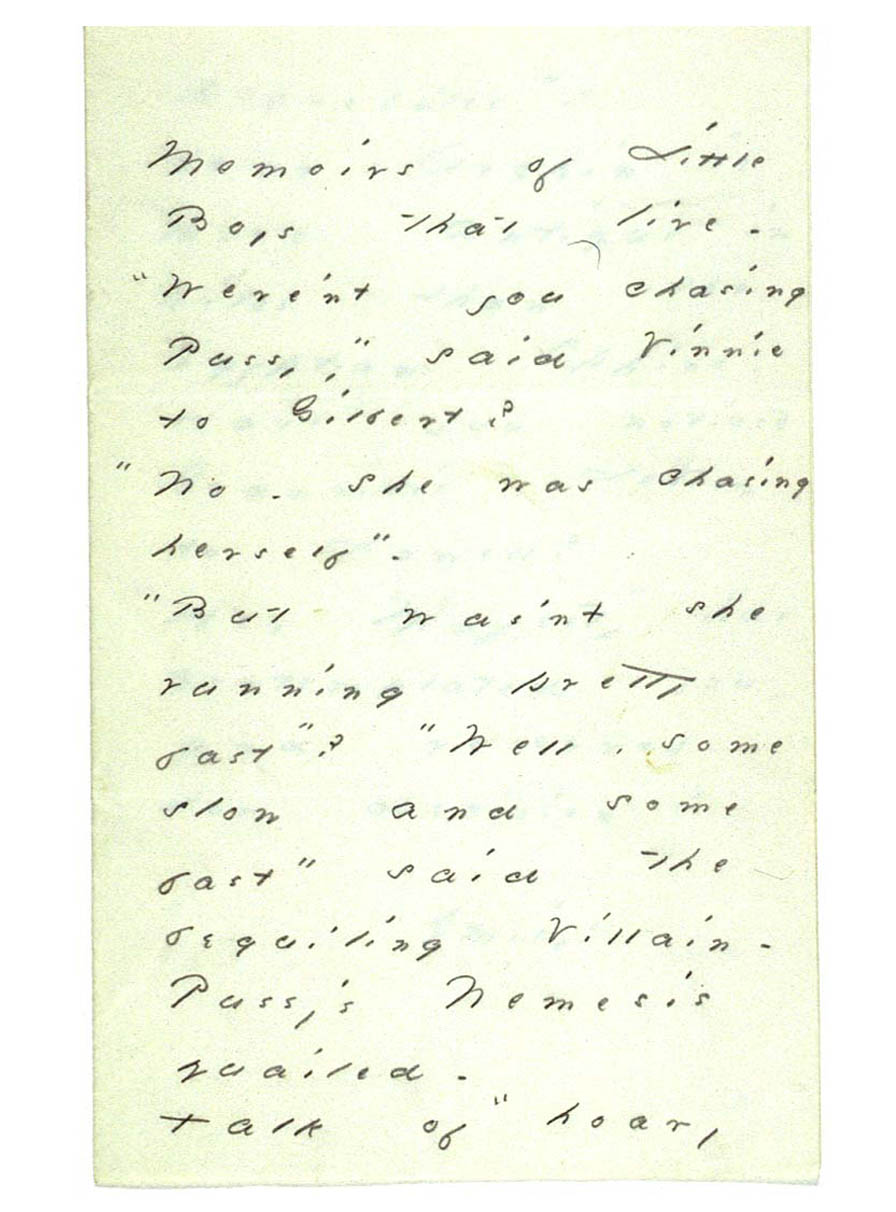 Memoirs of Little
Boys that live -
"Were'nt you chasing
Pussy," said Vinnie
to Gilbert?
"No - she was chasing
herself" -
"But was'nt she
running pretty
fast"? "Well, some
slow and some
fast" said the
beguiling Villain -
Pussy's Nemesis
quailed -
Talk of "hoary